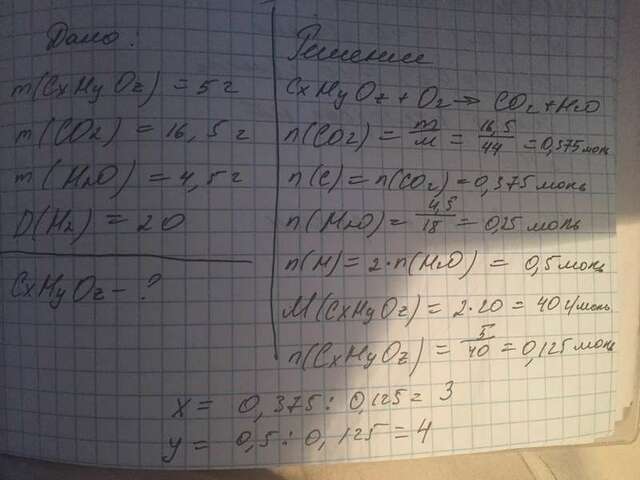 Дано:
m(CxHyOz) = 5 г
m(CO2) = 16,5 г
m(H2O) = 4,5 г
D(H2) = 20
CxHyOz – ?
Решение
CxHyOz + O2 → CO2 + H2O
n(CO2) = m/M = 16,5/44 = 0,375 моль
n(C) = n(CO2) = 0,375 моль
n(H2O) = 4,5/18 = 0,25 моль
n(H) = 2·n(H2O) = 0,5 моль
M(CxHyOz) = 2·20 = 40 г/моль
n(CxHyOz) = 5/40 = 0,125 моль
x = 0,375 : 0,125 = 3
y = 0,5 : 0,125 = 4